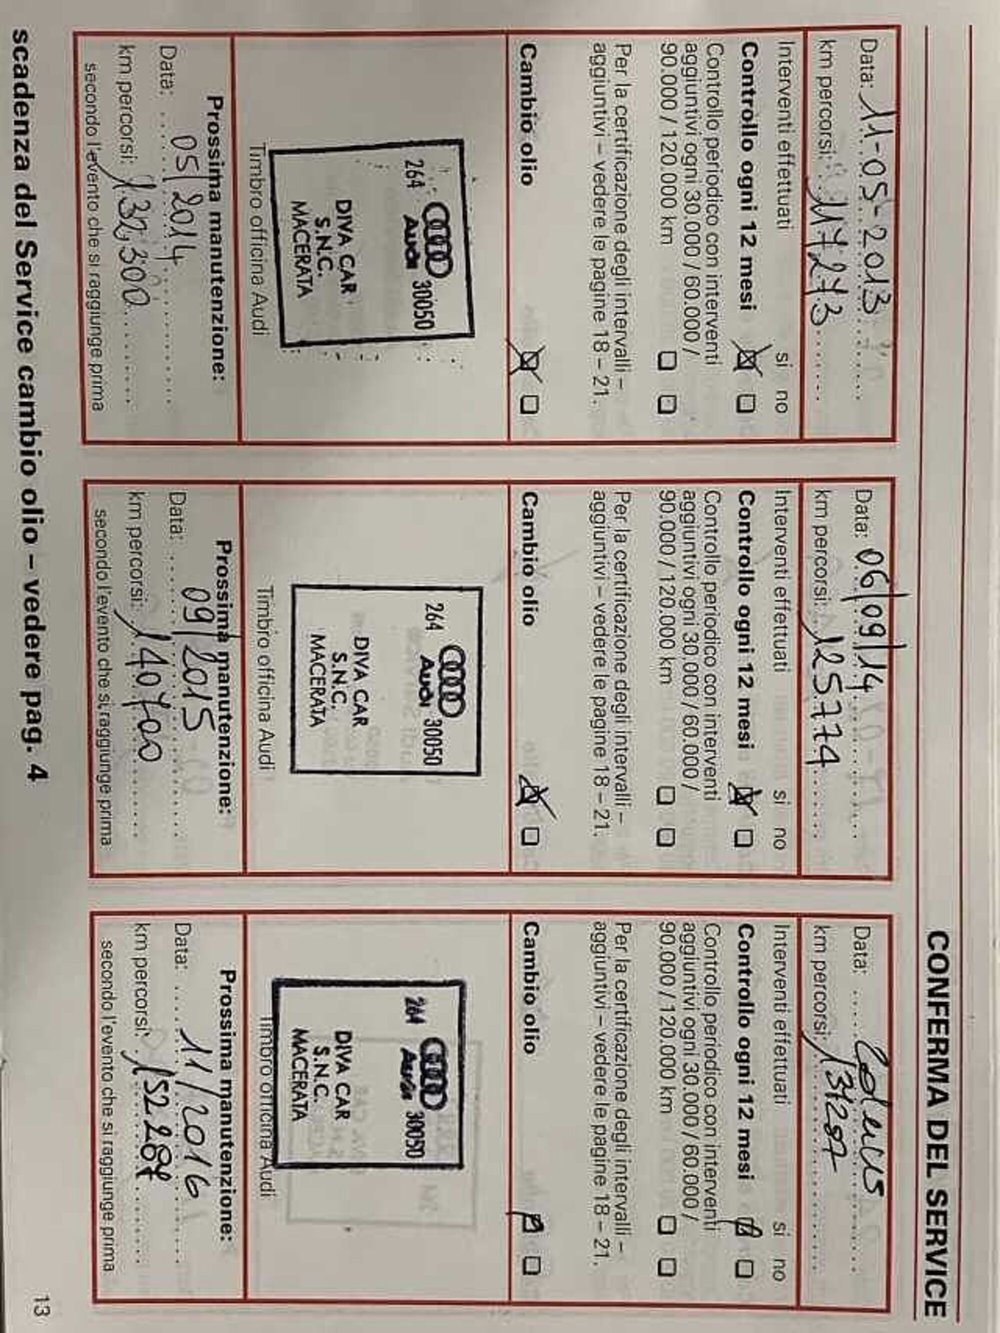 CONFERMA DEL SERVICE
Data: 11-05-2013
km percorsi: 117273
Interventi effettuati si no
Controllo ogni 12 mesi
Controllo periodico con interventi
aggiuntivi ogni 30.000 / 60.000 /
90.000 / 120.000 km
Per la certificazione degli intervalli –
aggiuntivi – vedere le pagine 18 – 21.
Cambio olio
Audi
264 30050
DIVA CAR
S.N.C.
MACERATA
Timbro officina Audi
Prossima manutenzione:
Data: 05/2014
km percorsi: 132300
secondo l'evento che si raggiunge prima
Data: 06/09/14
km percorsi: 125.774
Interventi effettuati si no
Controllo ogni 12 mesi
Controllo periodico con interventi
aggiuntivi ogni 30.000 / 60.000 /
90.000 / 120.000 km
Per la certificazione degli intervalli –
aggiuntivi – vedere le pagine 18 – 21.
Cambio olio
Audi
264 30050
DIVA CAR
S.N.C.
MACERATA
Timbro officina Audi
Prossima manutenzione:
Data: 09/2015
km percorsi: 140700
secondo l'evento che si raggiunge prima
Data:
km percorsi: 137287
Interventi effettuati si no
Controllo ogni 12 mesi
Controllo periodico con interventi
aggiuntivi ogni 30.000 / 60.000 /
90.000 / 120.000 km
Per la certificazione degli intervalli –
aggiuntivi – vedere le pagine 18 – 21.
Cambio olio
Audi
264 30050
DIVA CAR
S.N.C.
MACERATA
Timbro officina Audi
Prossima manutenzione:
Data: 11/2016
km percorsi: 152287
secondo l'evento che si raggiunge prima
scadenza del Service cambio olio – vedere pag. 4
13